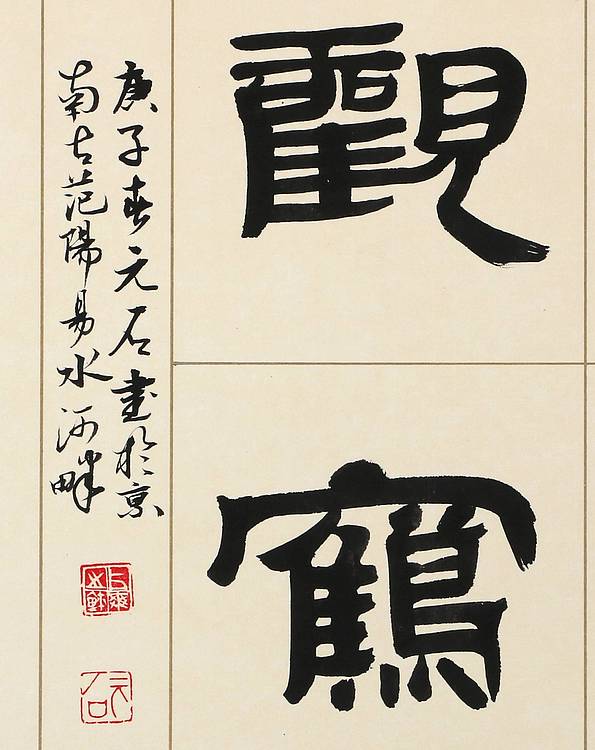 觀鶴
庚子春元石書於京
南古范陽易水河畔
元石